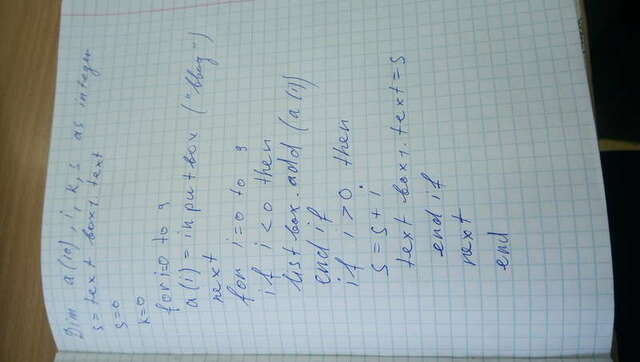 Dim a(10), i, k, s as integer
s = text box1.text
s=0
k=0
for i=0 to 9
a(i) = input box ("ввод")
next
for i=0 to 9
if i<0 then
list box.add (a(i))
end if
if i>0 then
s=s+i
text box1.text=s
end if
next
end